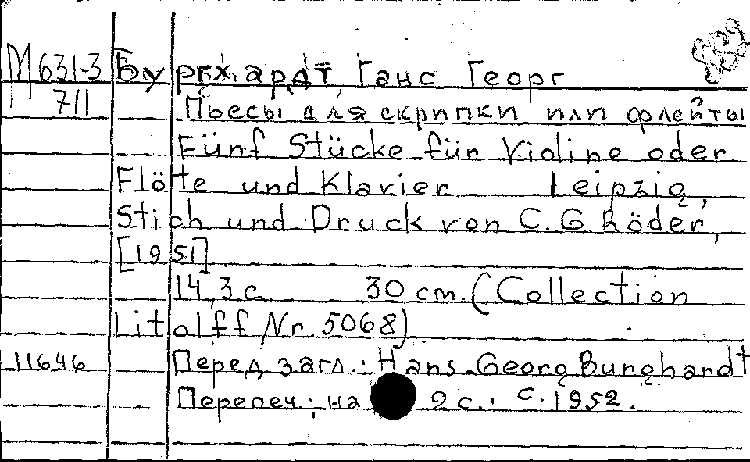 М631-3 Бургхардт, Ганс Георг
711 Пьесы для скрипки или флейты
Fünf Stücke für Violine oder
Flöte und Klavier Leipzig,
Stich und Druck von C.G Röder,
[1951]
14, 3 с 30 cm. (Collection
Litolff Nr 5068)
11646 Перед загл.: Hans Georg Burghardt
Перепеч: на 2 с.: с. 1952.